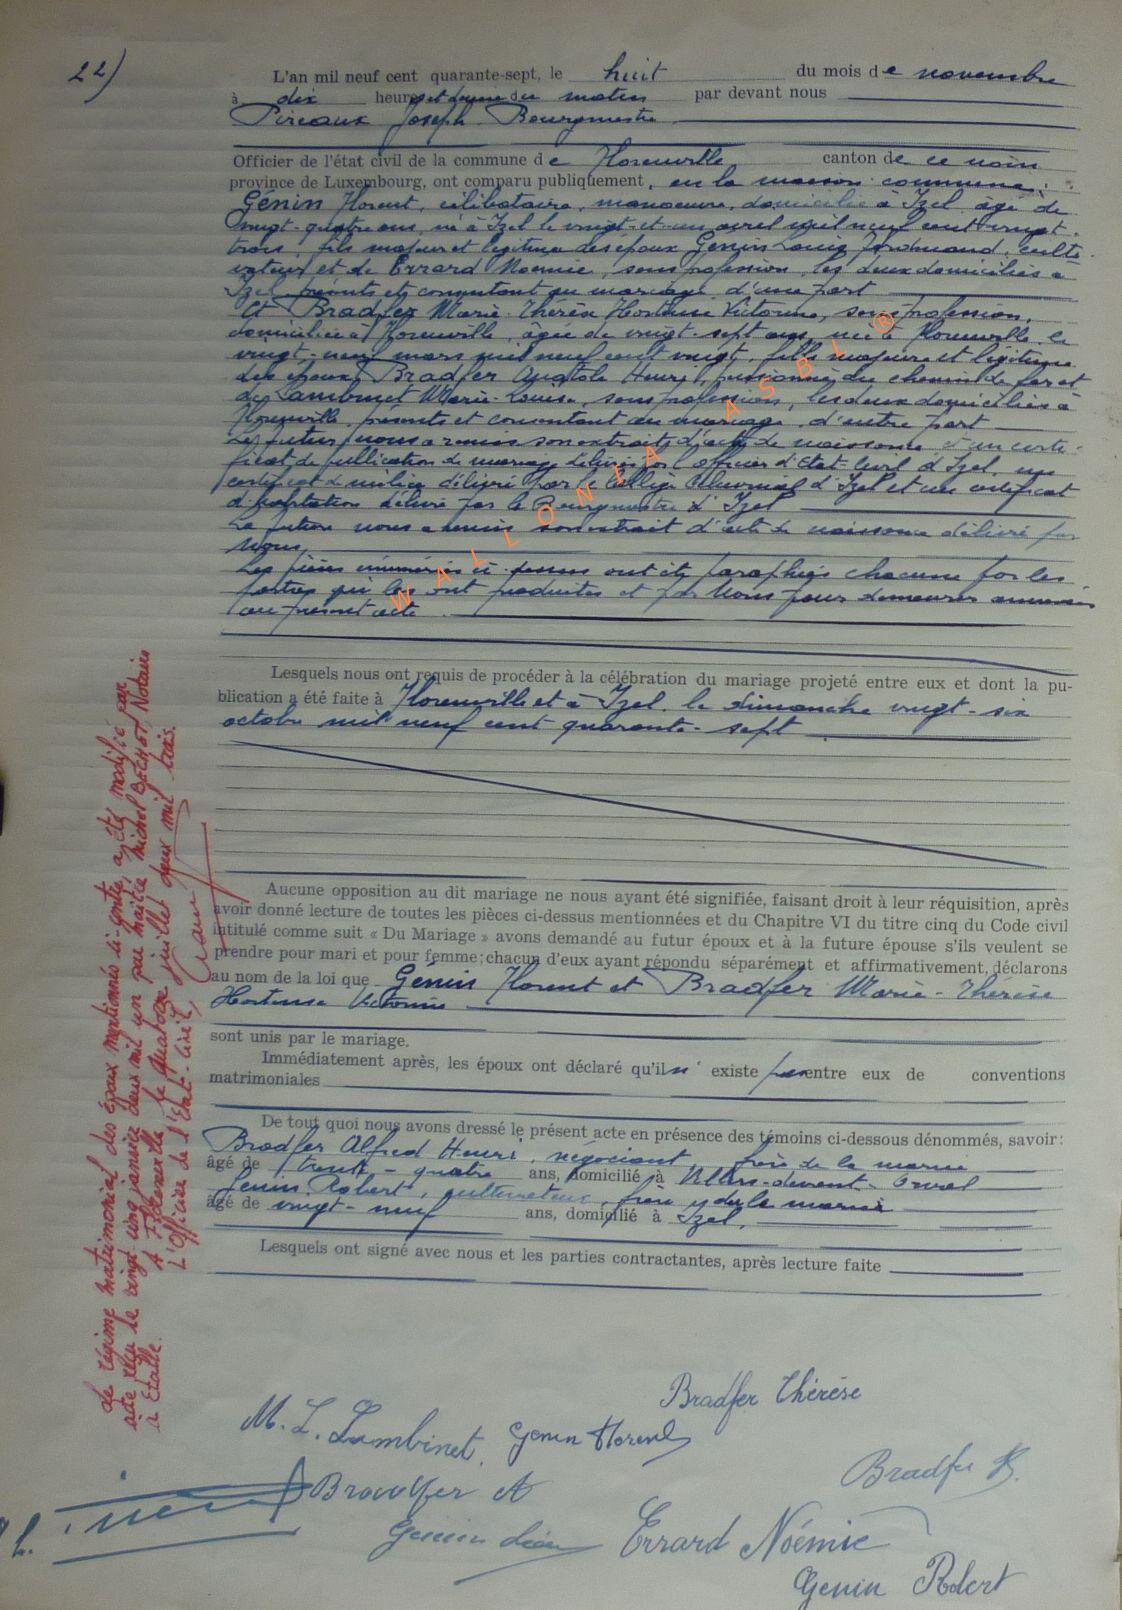 22)
L'an mil neuf cent quarante-sept, le huit du mois de novembre
à dix heures et demie du matin par devant nous
Pireaux Joseph Bourgmestre
Officier de l'état civil de la commune de Florenville canton de ce nom
province de Luxembourg, ont comparu publiquement, en la maison commune:
Génin Florent, célibataire, manoeuvre, domicilié à Izel, âgé de
vingt-quatre ans, né à Izel le vingt-et-un avril mil neuf cent vingt-
trois, fils majeur et légitime des époux Génin Louis Ferdinand, culti-
vateur et de Errard Noémie, sans profession, les deux domiciliés à
Izel, présents et consentant au mariage, d'une part
Et Bradfer Marie-Thérèse Hortense Victorine, sans profession,
domiciliée à Florenville, âgée de vingt-sept ans, née à Florenville le
vingt-neuf mars mil neuf cent vingt, fille majeure et légitime
des époux Bradfer Anatole Henri, pensionné du chemin de fer et
de Lambinet Marie-Louise, sans profession, les deux domiciliés à
Florenville, présents et consentant au mariage, d'autre part
Le futur nous a remis son extrait d'acte de naissance et un certi-
ficat de publication de mariage délivré par l'officier d'Etat-Civil d'Izel, un
certificat de milice délivré par le Collège Echevinal d'Izel et un certificat
d'habitation délivré par le Bourgmestre d'Izel
La future nous a remis son extrait d'acte de naissance délivré par
nous
Les pièces énumérées ci-dessus ont été paraphées chacune par les
parties qui les ont produites et par Nous pour demeurer annexées
au présent acte.
Lesquels nous ont requis de procéder à la célébration du mariage projeté entre eux et dont la pu-
blication a été faite à Florenville et à Izel, le dimanche vingt-six
octobre mil neuf cent quarante-sept
Aucune opposition au dit mariage ne nous ayant été signifiée, faisant droit à leur réquisition, après
avoir donné lecture de toutes les pièces ci-dessus mentionnées et du Chapitre VI du titre cinq du Code civil
intitulé comme suit « Du Mariage » avons demandé au futur époux et à la future épouse s'ils veulent se
prendre pour mari et pour femme; chacun d'eux ayant répondu séparément et affirmativement, déclarons
au nom de la loi que Génin Florent et Bradfer Marie-Thérèse
Hortense Victorine
sont unis par le mariage.
Immédiatement après, les époux ont déclaré qu'il n'existe pas entre eux de conventions
matrimoniales
De tout quoi nous avons dressé le présent acte en présence des témoins ci-dessous dénommés, savoir:
Bradfer Alfred Henri, négociant, frère de la mariée
âgé de trente-quatre ans, domicilié à Villers-devant-Orval
Genin Robert, cultivateur, frère du marié
âgé de vingt-neuf ans, domicilié à Izel,
Lesquels ont signé avec nous et les parties contractantes, après lecture faite
Le régime matrimonial des époux mentionnés ci-contre, a été modifié par
acte reçu le vingt cinq janvier deux mil un par maître Michel BECHET Notaire
à Etalle.
A Florenville le quatorze juillet deux mil trois.
L'Officier de l'Etat-Civil,
Bradfer Thérèse
M. L. Lambinet
Genin Florent
Bradfer A
Errard Noémie
Genin Robert
WALLONIA ASBL ®